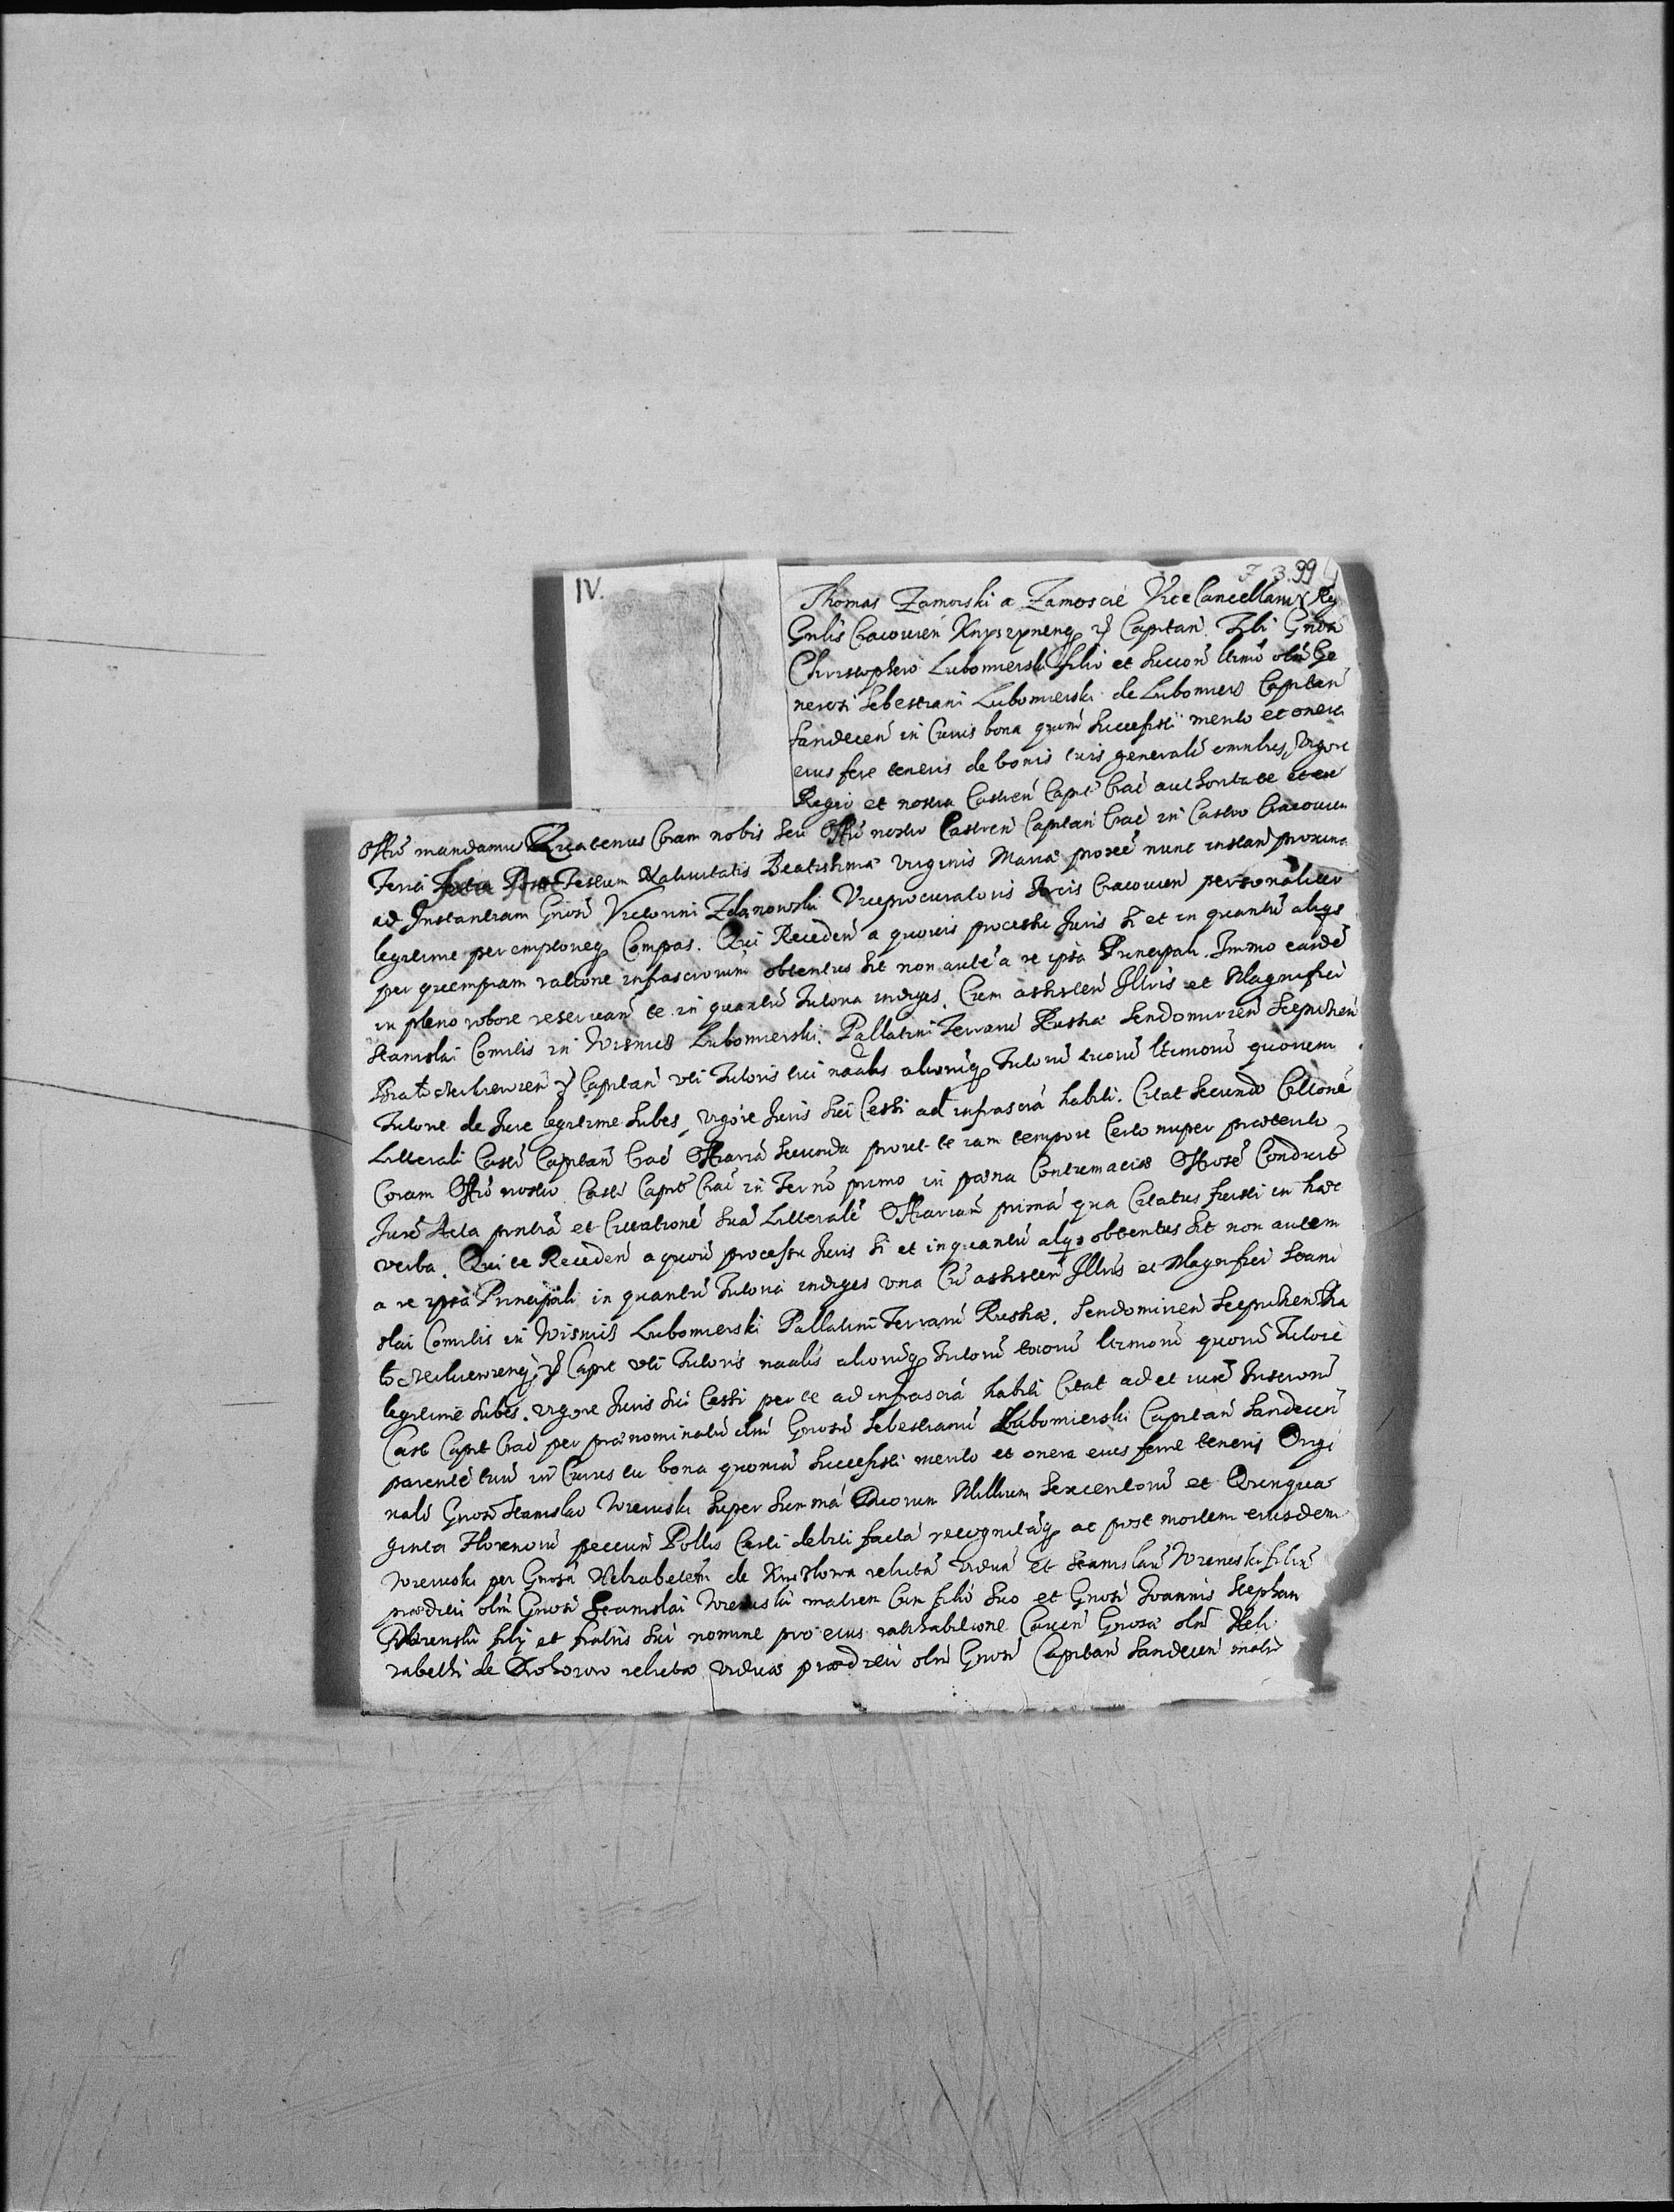 IV.
7 3.99
Thomas Zamoiski a Zamoscie Vice Cancellarius Reg
Gnlis Cracovien Knyszynenq Capitan. Tibi Gnoso
Christophero Lubomierski filio et succori ltimo olim Ge
nerosi Sebestiani Lubomierski de Lubomierz Capitan
Sandecen in Cuius bona quoniã successisti merito et onera
eius ferre teneris de bonis tuis generalr omnibus, vigore
Regia et nostra Castren Capit Crac authoritate et ex
Offo mandamus Quatenus Coram nobis seu Offo nostro Castren Capitan Crac in Castro Cracovien
Feria Sexta Post Festum Nativitatis Beatissimæ Virginis Mariæ proxe nunc instan proxima
ad Instantiam Gnosi Victorini Zdanowski Viceprocuratoris Arcis Cracovien personaliter
legitime peremptorieq Compas. Qui Receden a quovis processu Juris si et in quantũ aliqs
per præmpram ratione infrascriorum obtentus sit non autẽ a re ipsa Principali. Immo eandẽ
in pleno robore reservan te in quantũ Tutoria indiges. Cum assisten Illris et Magnifici
Stanislai Comitis in Wisnicz Lubomierski. Pallatini Terrarũ Russiæ Sendomirien Scepusien
Capitan uti Tutoris tui naalis aliorũq Tutorũ tuorũ ltimorũ quorum
Tutore de Jure legitime subes, vigore Juris sui Cessi ad infrascra habiti. Citat secundo Citlone
Litterali Castr Capitan Crac Offiaria secunda prout te iam tempore Certo nuper præterito
Coram Offo nostro Castr Capit Crac in Terno primo in pæna Contumaciæ Offose Conduxit
Jure Acta pntia et Citationẽ suã Litteralẽ Offiariam primã qua Citatus fuisti in hæc
verba. Qui te Receden a quovis processu Juris si et inquantũ alqs obtentus sit non autem
a re ipsa Principali in quantũ Tutoria indiges una Cũ assisten Illris et Magnifici Stani
slai Comitis in Wisnicz Lubomierski Pallatini Terrarũ Russiæ. Sendomirien Scepusien
Capit uti Tutoris naalis aliorũq Tutorũ tuorũ ltimorũ quorũ Tutore
legitime subes. vigore Juris sui Cessi per te ad infrascra habiti Citat ad et iuxta Inscronẽ
Cast Capit Crac per prænominatũ olim Gnosũ Sebestianũ Lubomierski Capitan Sandecen
parentẽ tuũ in Cuius tu bona quoniã successisti merito et onera eius ferre teneris Origi
nali Gnoso Stanislao Wrenski super summã Duorum Millium Sexcentorũ et Quinqua
ginta Florenorũ pecun Pollis Certi debiti facta recognitãq ac post mortem eiusdem
Wrenski per Gnosã Helzabetem de relictã viduã et Stanislaũ Wrenski filiũ
prædicti olim Gnosi Stanislai Wrenski matrem Cum filio suo et Gnosi Joannis Stephani
Wrenski filij et fratris sui nomine pro eius ratihabitione Caven Gnosæ olim Heli
zabethi de relictæ viduæ prædicti olim Gnosi Capitan Sandecen matri